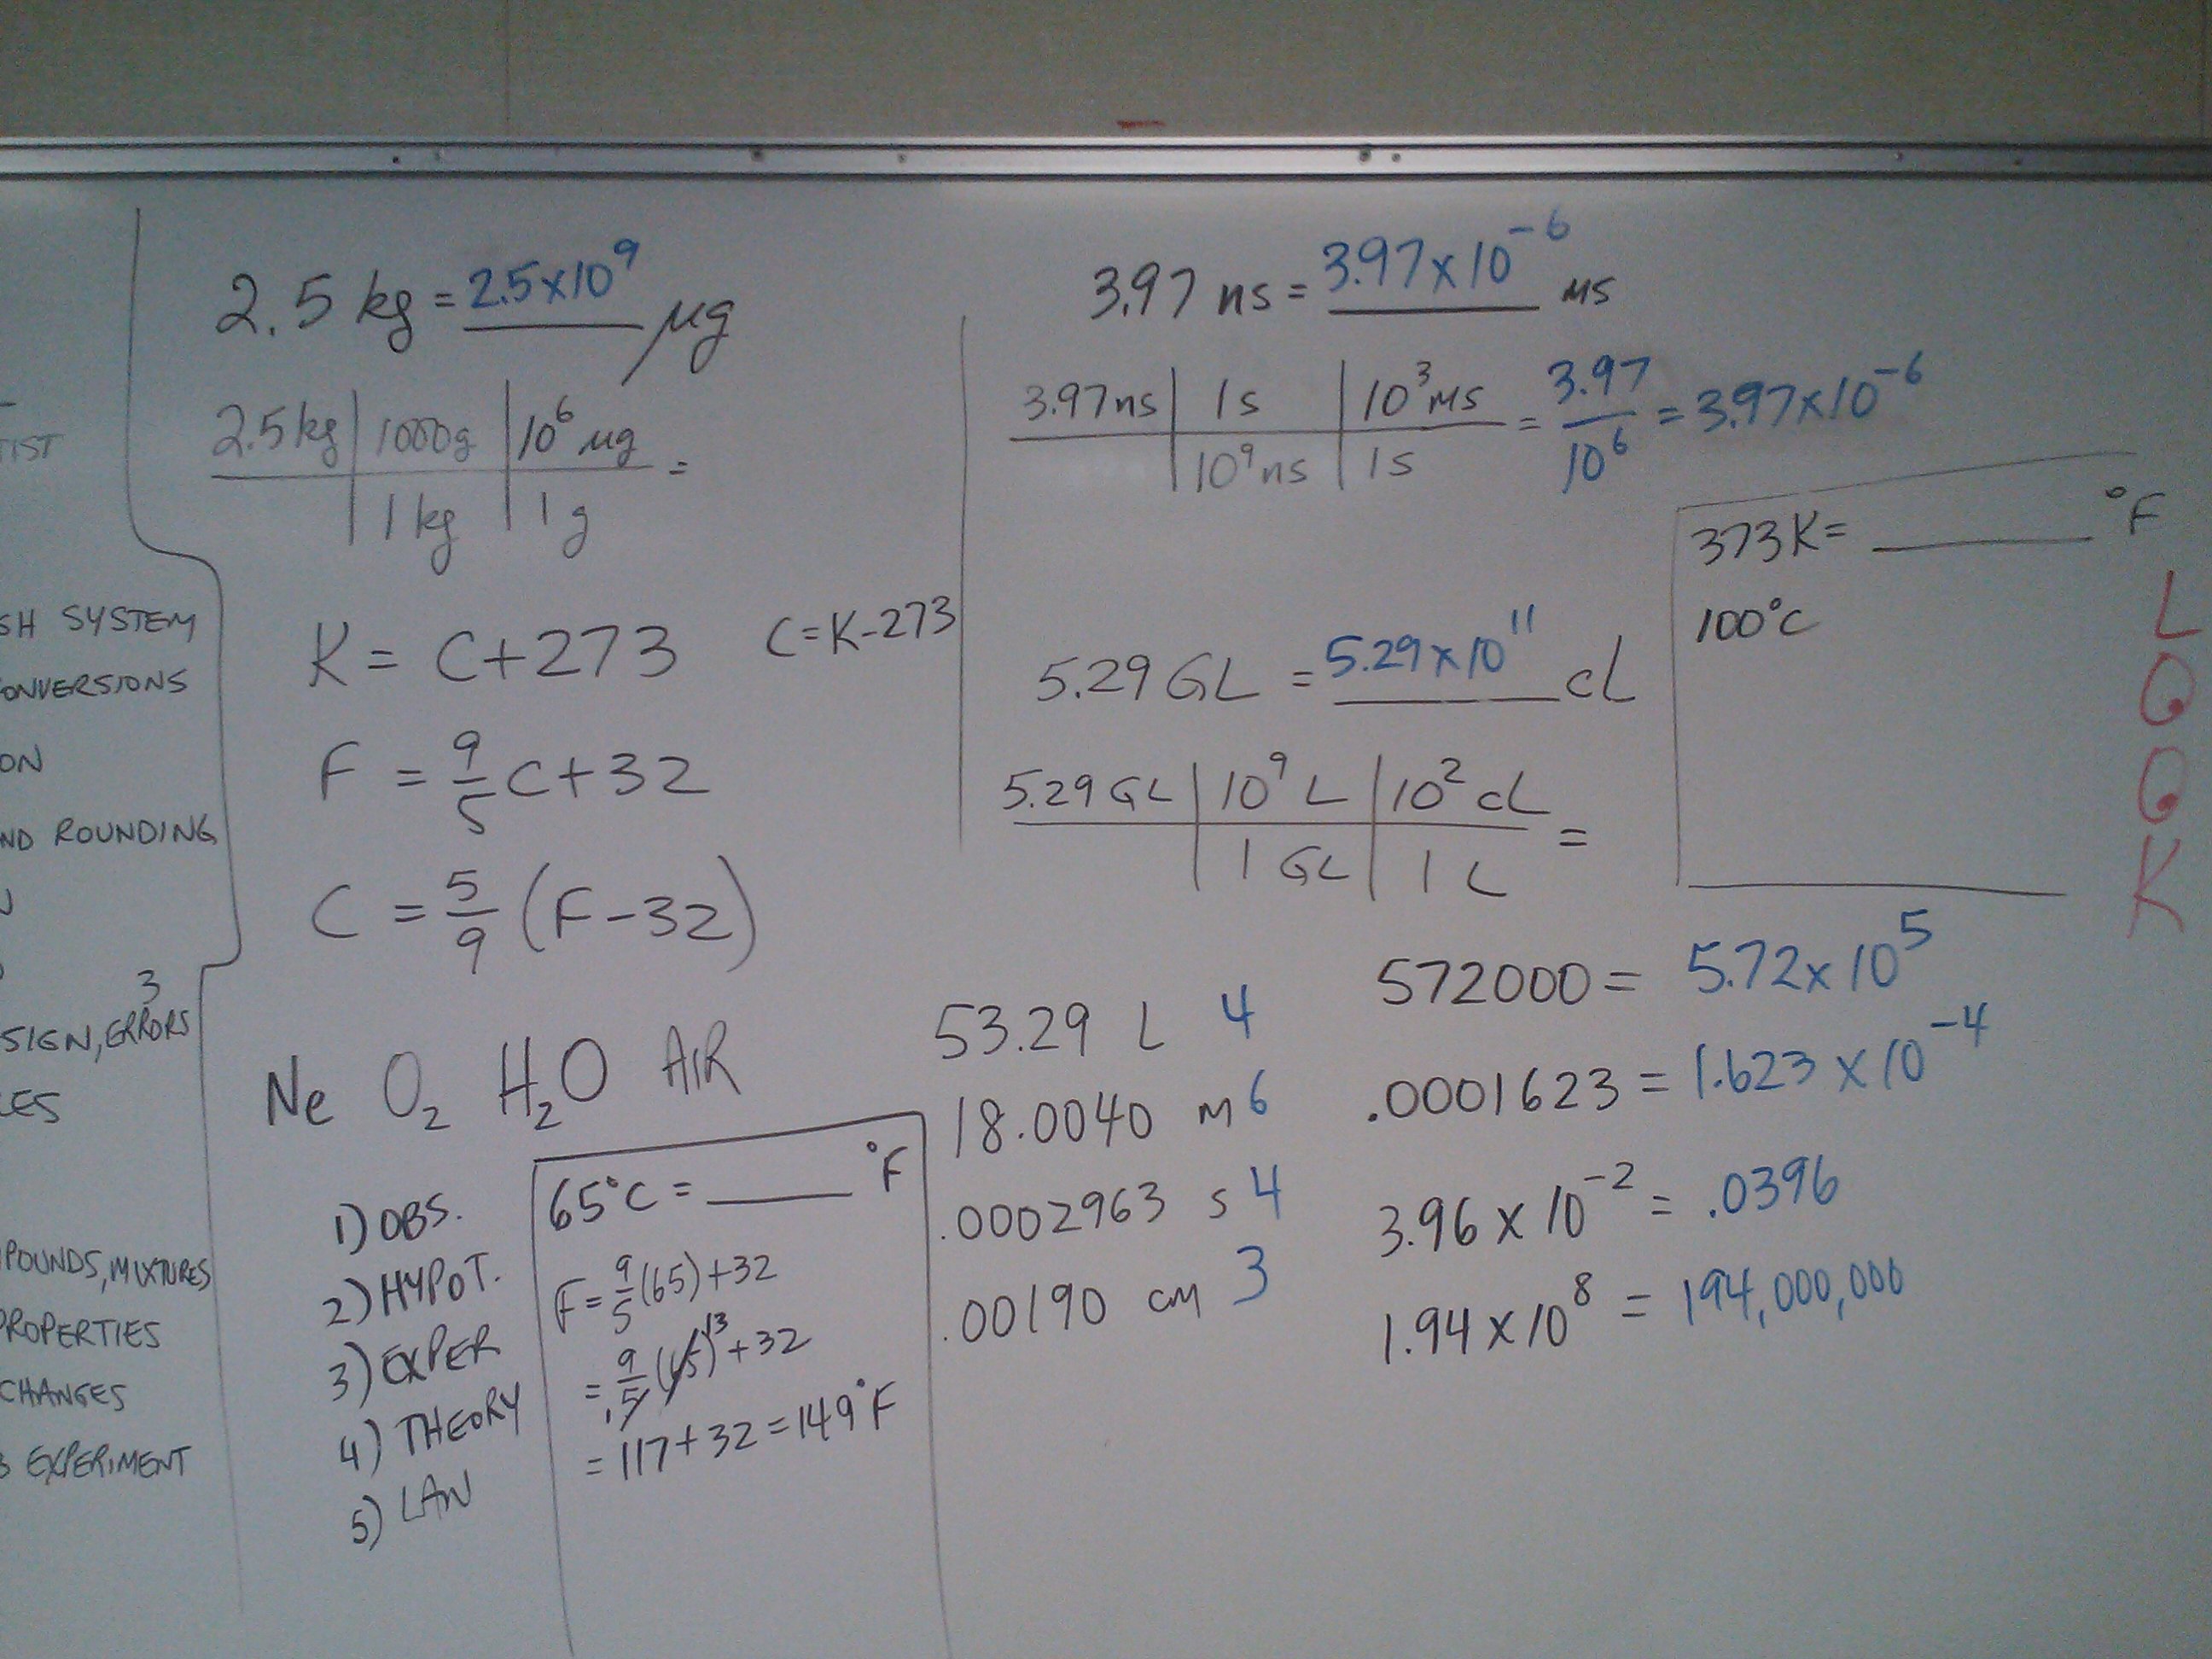 TIST
SH SYSTEM
ONVERSIONS
ON
ND ROUNDING
3
SIGN, ERRORS
LES
POUNDS, MIXTURES
ROPERTIES
CHANGES
EXPERIMENT
2.5 kg = 2.5x10⁹ µg
2.5 kg | 1000g | 10⁶ µg =
1 kg | 1 g
K = C+273 C=K-273
F = 9/5 C+32
C = 5/9 (F-32)
Ne O₂ H₂O AIR
1) OBS.
2) HYPOT.
3) EXPER
4) THEORY
5) LAW
65°C = ______ °F
F = 9/5 (65) + 32
= 9/5 (65) 13 + 32
1
= 117 + 32 = 149°F
3.97 ns = 3.97x10⁻⁶ ms
3.97ns | 1s | 10³ ms = 3.97/10⁶ = 3.97x10⁻⁶
10⁹ns | 1s
5.29 GL = 5.29x10¹¹ cL
5.29 GL | 10⁹ L | 10² cL =
1 GL | 1 L
373K = ______ °F
100°C
LOOK
53.29 L 4
18.0040 m 6
.0002963 s 4
.00190 cm 3
572000 = 5.72x10⁵
.0001623 = 1.623x10⁻⁴
3.96x10⁻² = .0396
1.94x10⁸ = 194,000,000